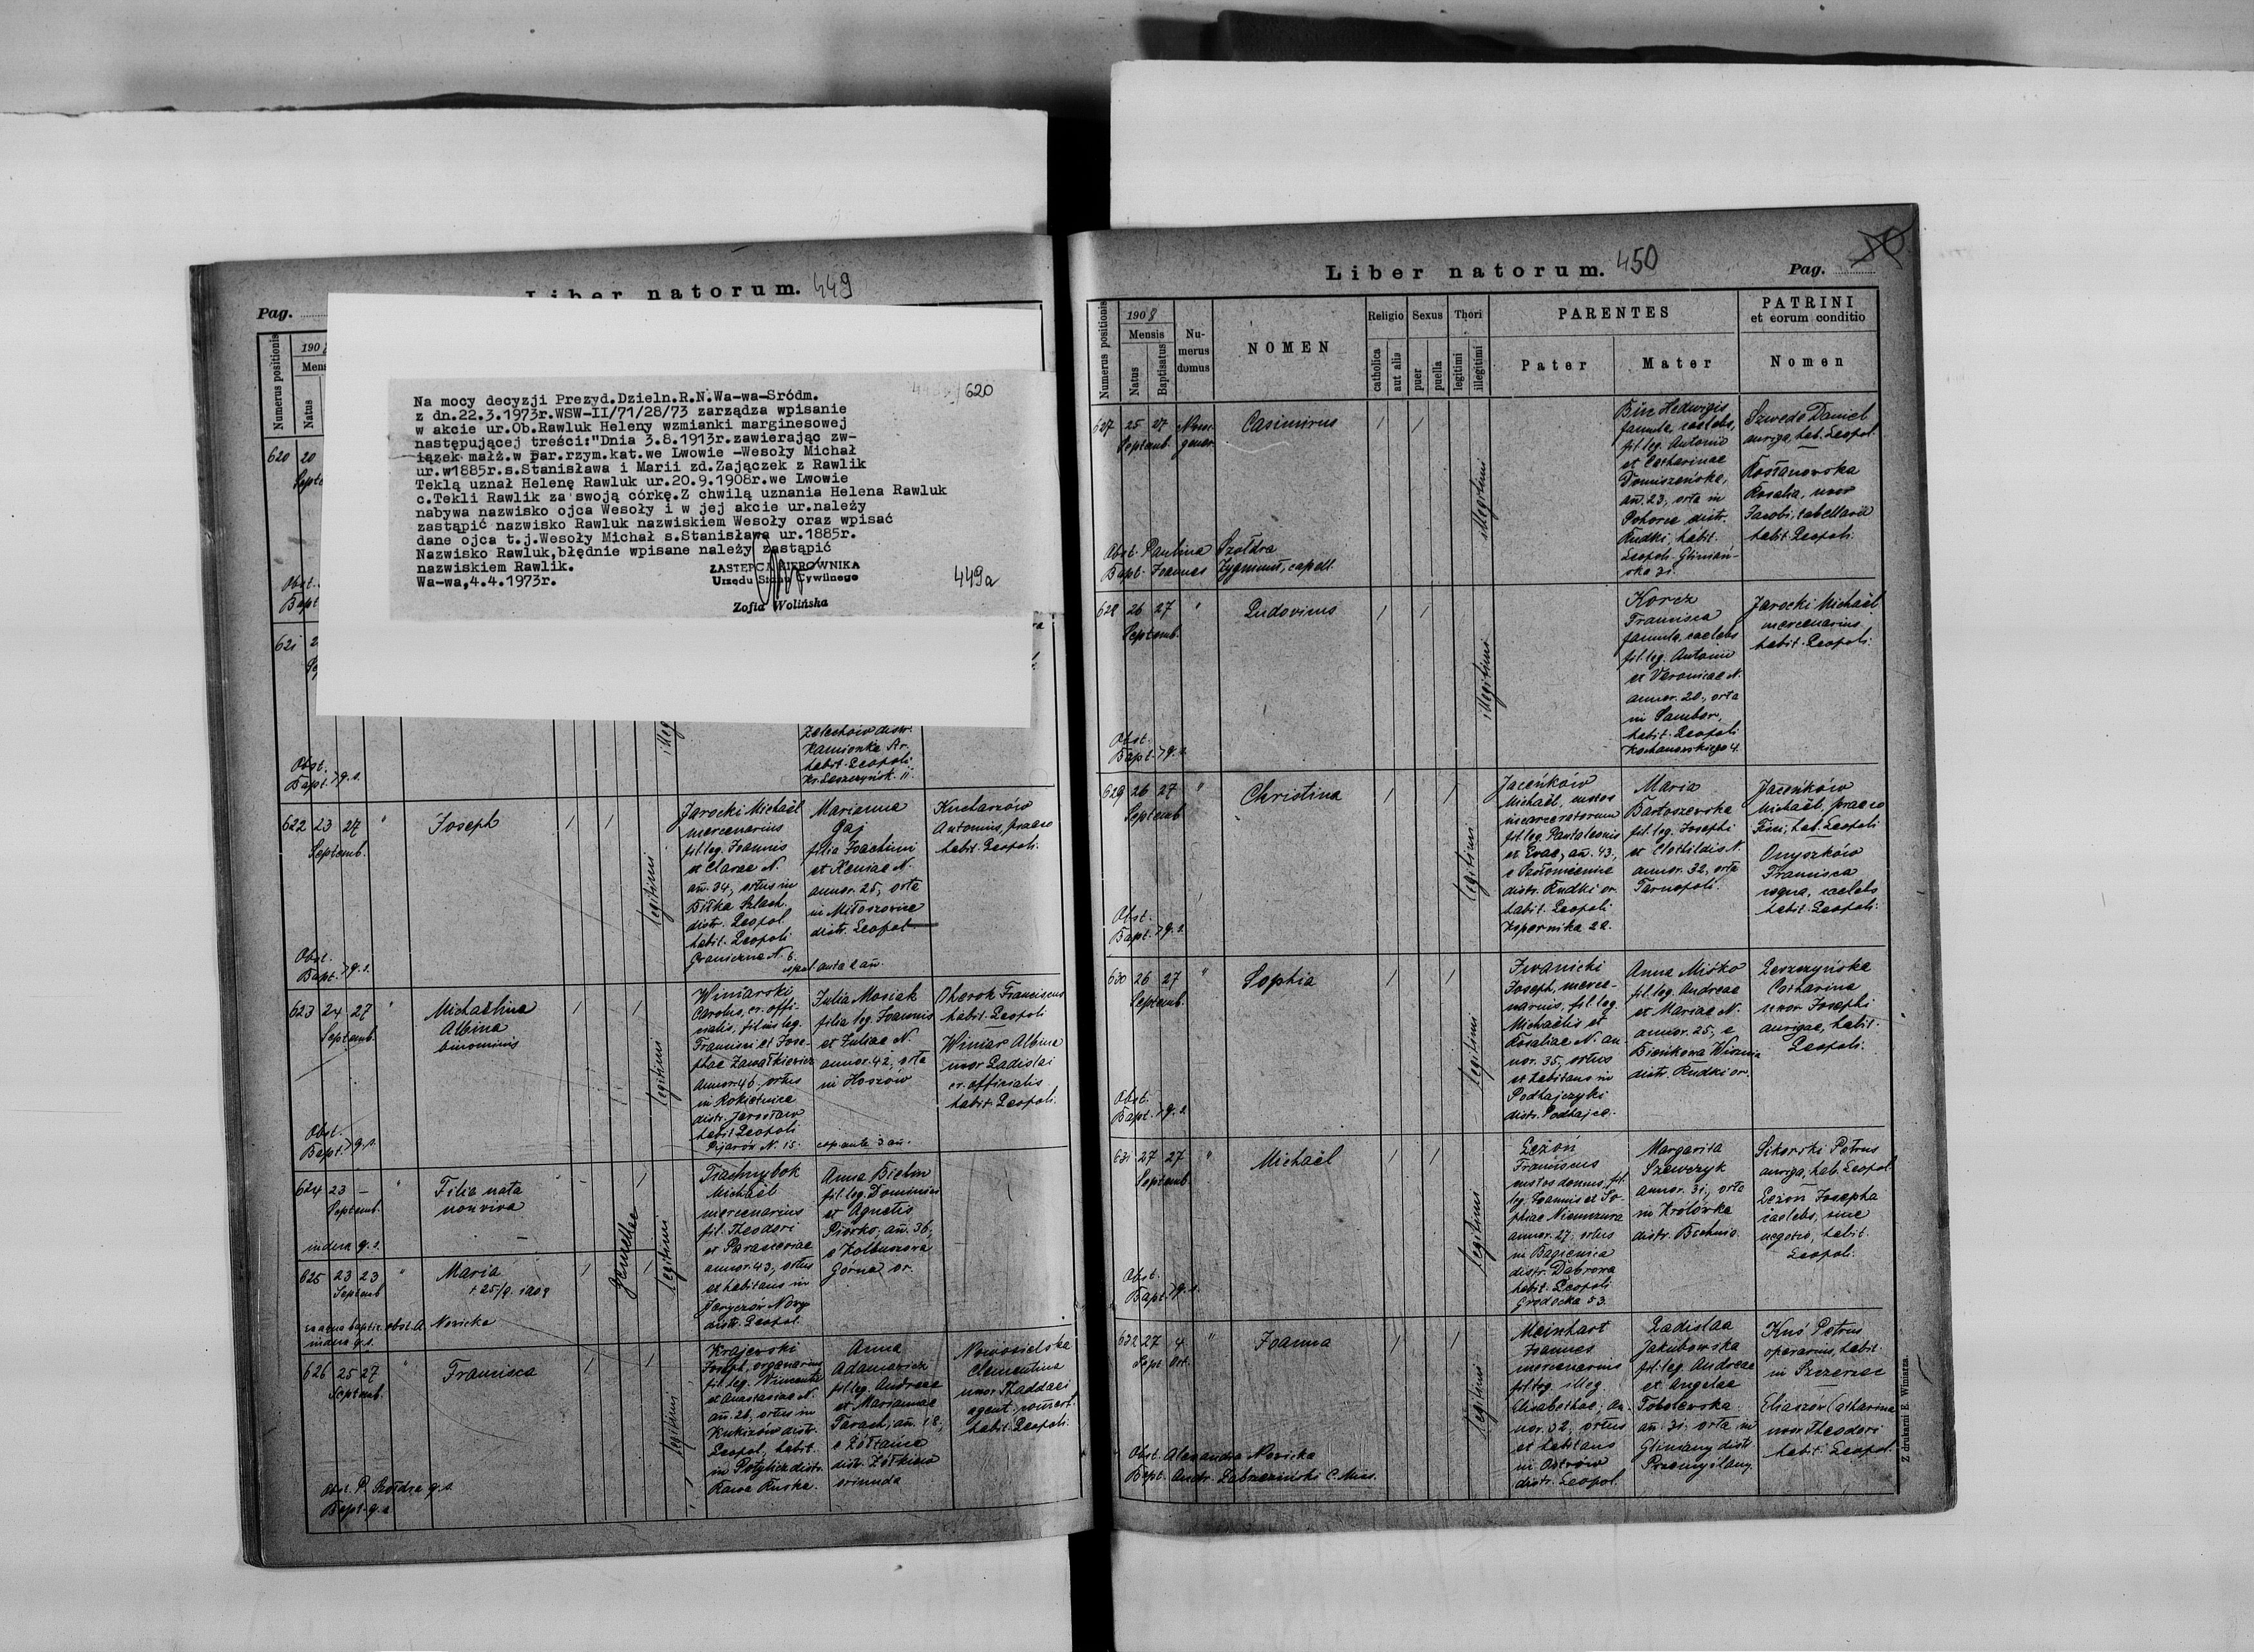 Liber natorum. 449
Pag.
Numerus positionis
190
Natus
620 20
Obst.
Bapt
620
Na mocy decyzji Prezyd.Dzieln.R.N.Wa-wa-Sródm.
z dn.22.3.1973r.WSW-II/71/28/73 zarządza wpisanie
w akcie ur.Ob.Rawluk Heleny wzmianki marginesowej
następującej treści:"Dnia 3.8.1913r.zawierając zw-
iązek małż.w par.rzym.kat.we Lwowie -Wesoły Michał
ur.w1885r.s.Stanisława i Marii zd.Zajączek z Rawlik
Teklą uznał Helenę Rawluk ur.20.9.1908r.we Lwowie
c.Tekli Rawlik za swoją córkę.Z chwilą uznania Helena Rawluk
nabywa nazwisko ojca Wesoły i w jej akcie ur.należy
zastąpić nazwisko Rawluk nazwiskiem Wesoły oraz wpisać
dane ojca t.j.Wesoły Michał s.Stanisława ur.1885r.
Nazwisko Rawluk,błędnie wpisane należy zastąpić
nazwiskiem Rawlik.
Wa-wa,4.4.1973r.
ZASTĘPCA KIEROWNIKA
Urzędu Stanu Cywilnego
Zofia Wolińska
449a
621
Żelechów distr.
Kamionka Str.
habit. Leopoli
Obst.
Bapt. > q. s.
622 23 27 "
Septemb.
Joseph
legitimi
Jarocki Michaël
mercenarius
fil. leg. Joannis
et Clarae N.
añ. 34, ortus in
Biłka Szlach.
distr. Leopol.
habit. Leopoli
Graniczna N. 6.
Marianna
Gaj
filia Joachimi
et Xeniae N.
annor. 25, orta
in Miłoszowice
distr. Leopol
copul. ante 2 añ.
Kucharzów
Antonius, praeco
habit. Leopoli.
Obst.
Bapt. > q. s.
623 24 27 "
Septemb.
Michaëlina
Albina
binominis
legitimi
Winiarski
Carolus, cr. offi-
cialis, filius leg.
Francisci et Jose-
phae Zawałkiewicz
annor. 46, ortus
in Rokietnica
distr. Jarosław
habit. Leopoli
Pijarów N. 15.
Julia Mosiak
filia leg. Joannis
et Juliae N.
annor. 42, orta
in Hoszów
cop. ante 3 añ.
Oherok Franciscus
habit. Leopoli
Winiar Albina
uxor Ladislai
cr. officialis
habit. Leopoli.
Obst.
Bapt. > q. s.
624 23 — "
Septemb.
Filia nata
non viva
indera q. s.
Gemellae
legitimi
Tiachnybok
Michaël
mercenarius
fil. Theodori
et Parasceviae
annor. 43, ortus
et habitans in
Jaryczów Nowy
distr. Leopol.
Anna Bielin
fil. leg. Dominici
et Agnetis
Piórko, añ. 36,
e Kolbuszowa
Górna or.
625 23 23 "
Septemb
Maria
+ 25/9. 1908
obst. A. Nowicka
626 25 27 "
Septemb.
Francisca
legitimi
Krajewski
Joseph, organarius
fil. leg. Vincentii
et Anastasiae N.
añ. 26, ortus in
Kukizów distr.
Leopol, habit.
in Potylicz distr.
Rawa Ruska.
Anna
Adamowicz
fil. leg. Andreae
et Mariannae
Tarach, añ. 18,
e Żółtańce
distr. Żółkiew
oriunda
Nowosielska
Clementina
uxor Thaddaei
agent. comerc.
habit. Leopoli.
Obst. P. Szołdra q. s.
Bapt. q. s
Liber natorum. 450
Pag.
Numerus positionis
1908
Mensis
Natus
Baptisatus
Nu-
merus
domus
NOMEN
Religio
catholica
aut alia
Sexus
puer
puella
Thori
legitimi
illegitimi
PARENTES
Pater
Mater
PATRINI
et eorum conditio
Nomen
627 25 27
Septemb.
Casimirus
illegitimi
Bin Hedwigis
famula, caelebs,
fil. leg. Antonii
et Catharinae
Domiszeńska,
añ. 23, orta in
Pohorce distr.
Rudki, habit.
Leopoli. Gliniań-
ska 21.
Szweda Daniel
auriga, hab. Leopol.
Kosłanowska
Rosalia, uxor
Jacobi, tabellarii
habit. Leopoli.
Obst. Paulina Szołdra
Bapt. Joannes Zygmunt, capell.
628 26 27 "
Septemb.
Ludovicus
illegitimi
Korcz
Francisca
famula, caelebs
fil. leg. Antonii
et Veronicae N.
annor. 20, orta
in Sambor,
habit. Leopoli
Kochanowskiego 4.
Jarocki Michaël
mercenarius
habit. Leopoli.
Obst.
Bapt. > q. s.
629 26 27 "
Septemb
Christina
legitimi
Jaceńków
Michaël, custos
incarceratorum
fil. leg. Pantaleonis
et Evae, añ. 43,
distr. Rudki or.
habit. Leopoli
Kopernika 22.
Maria
Bartoszewska
fil. leg. Josephi
et Clothildis N.
annor. 32, orta
Tarnopoli.
Jaceńków
Michaël, praeco
habit. Leopoli
Onyszków
Francisca
coqua, caelebs
habit. Leopoli.
Obst.
Bapt. > q. s.
630 26 27 "
Septemb.
Sophia
legitimi
Iwanicki
Joseph, merce-
narius, fil. leg.
Michaëlis et
Rosaliae N. an-
nor. 35, ortus
et habitans in
Podhajczyki
distr. Podhajce.
Anna Miśko
fil. leg. Andreae
et Mariae N.
annor. 25, e
Bieńkowa Wisznia
distr. Rudki or.
Leszczyńska
Catharina
uxor Josephi
aurigae, habit.
Leopoli.
Obst.
Bapt. > q. s.
631 27 27 "
Septemb
Michaël
legitimi
Leżoń
Franciscus
custos domus, fil.
leg. Joannis et So-
phiae Niemczura
annor. 27, ortus
in Bagienica
distr. Dąbrowa
habit. Leopoli
Grodecka 53.
Margarita
Szewczyk
annor. 31, orta
in Królówka
distr. Bochnia
Sikorski Petrus
auriga, hab. Leopol
Leżoń Josepha
caelebs, sine
negotio, habit.
Leopoli.
Obst.
Bapt. > q. s.
632 27 4 "
Sept. Oct.
Joanna
legitimi
Meinhart
Joannes
mercenarius
fil. leg. illeg.
Elisabethae, an-
nor. 32, ortus
et habitans
in Ostrów
distr. Leopol.
Ladislaa
Jakubowska
fil. leg. Andreae
et Angelae
Tobolewska
añ. 31. orta in
Gliniany distr.
Przemyślany.
Kuś Petrus
operarius, habit.
in Szczerzec
Eliaszow Catharina
uxor Theodori
habit. Leopol.
Obst. Alexandra Nowicka
Z drukarni E. Winiarza.